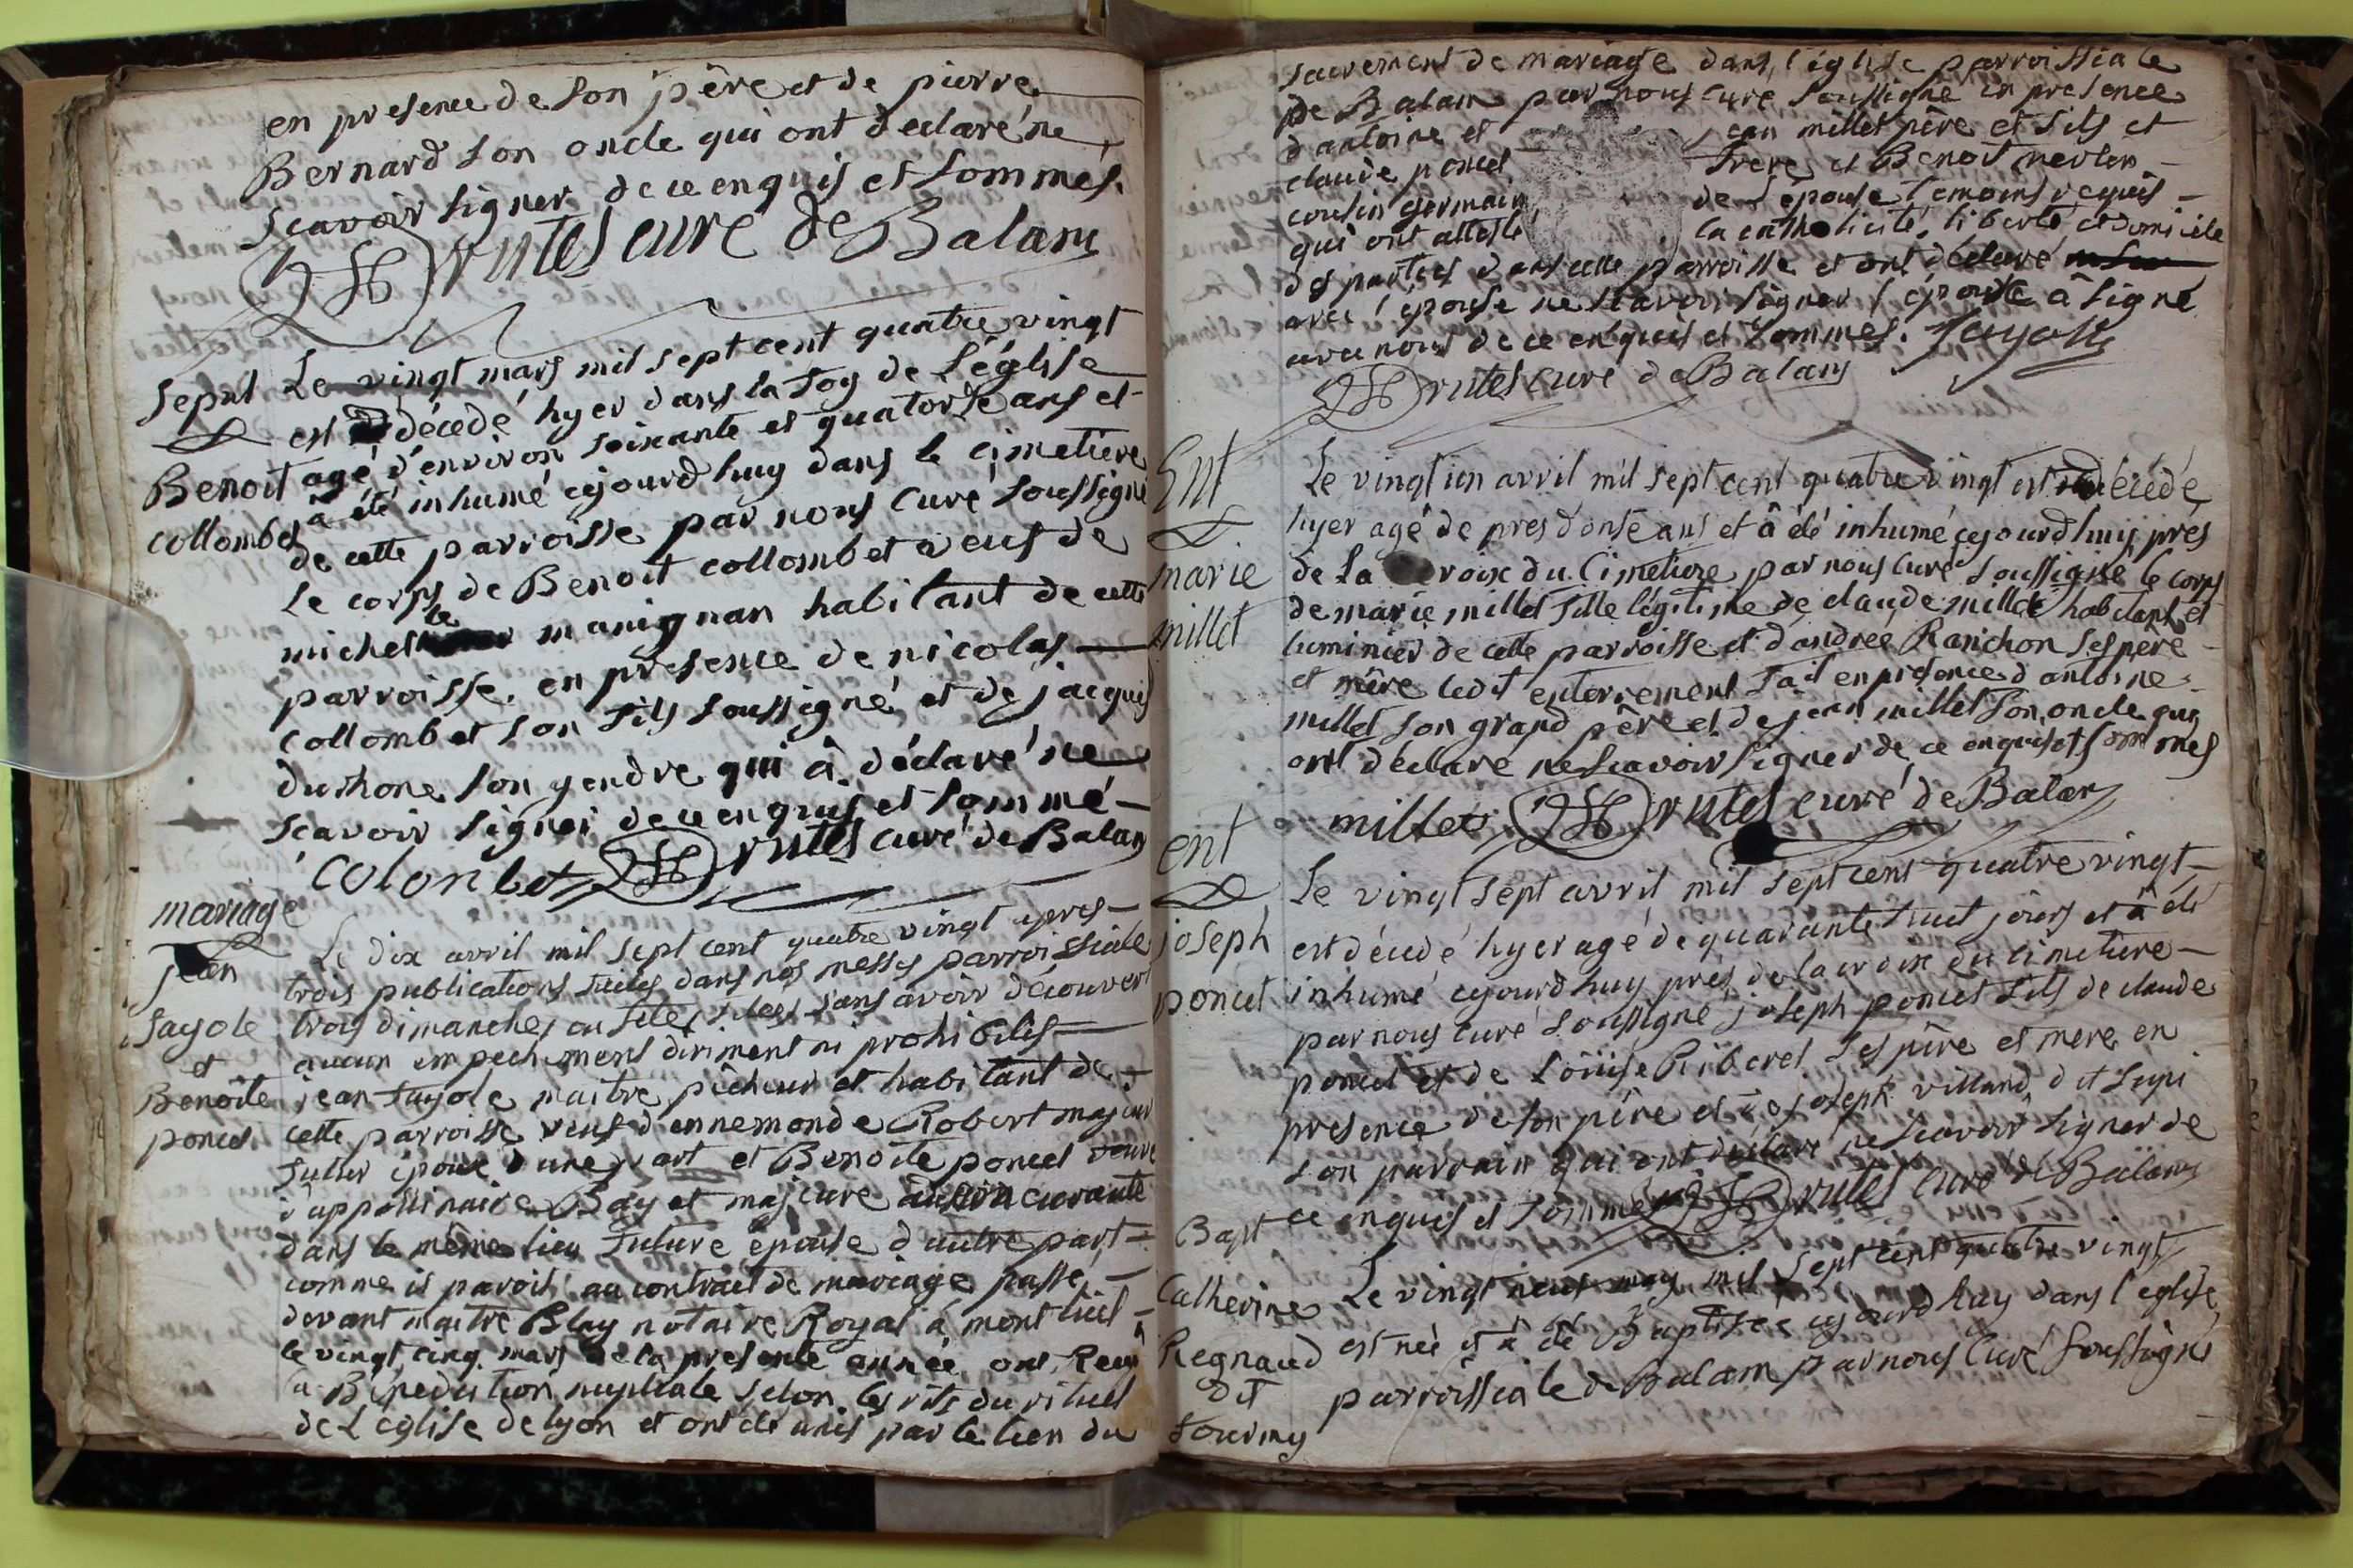 en presence de son père et de pierre
Bernard son oncle qui ont declaré ne
scavoir signer de ce enquis et sommés.
Brutel curé de Balan
Sepul
Benoit
collombet
Le vingt mars mil sept cent quatre vingt
est décedé hyer dans la foy de l'église
agé d'environ soixante et quatorse ans et
à été inhumé cejourdhuy dans le cimetiere
de cette parroisse par nous curé soussigné
Le corps de Benoit collombet veuf de
michelle manignan habitant de cette
parroisse. en presence de nicolas
Collombet son fils soussigné et de jacques
du rhone son gendre qui â déclaré ne
scavoir signer de ce enquis et sommé
Colonbet Brutel curé de Balan
mariage
jean
fayole
et
Benoite
poncet
Le dix avril mil sept cent quatre vingt apres
trois publications faites dans nos messes parroissiale
trois dimanches ou fetes sans avoir découvert
aucun empechement diriment ni prohibitif
jean fayole maitre pêcheur et habitant de
cette parroisse veuf d'ennemonde Robert majeur
futur époux d'une part et Benoite poncet veuve
d'appollinaire Bay et majeure
dans le même lieu future épouse d'autre part
comme il paroit au contract de mariage passé
devant maitre Blay notaire Royal à montluel
le vingt cinq mars de la presente année ont Reçu
la Bénediction nuptiale selon les rits du rituel
de L'eglise de lyon et ont été unis par le lien du
sacrement de mariage dans l'église parroissiale
de Balan par nous curé soussigné en presence
d'antoine et jean millet père et fils et
claude poncet frere et Benoit
cousin germain de l'épouse temoins requis
qui ont attesté la catholicité, liberté et domicile
des parties dans cette parroisse et ont déclaré
avec l'épouse ne scavoir signer l'époux â signé
avec nous de ce enquis et sommés. fayolle
Brutel curé de Balan
Ent
marie
millet
Le vingt un avril mil sept cent quatre vingt est décédé
hyer agé de pres d'onse ans et â été inhumé cejourdhuy pres
de La croix du Cimetiere par nous curé soussigné le corps
de marie millet fille légitime de claude millet habitant et
luminier de cette parroisse et d'andrée Ranichon ses père
et mère ledit enterrement fait en presence d'antoine
millet son grand père et de jean millet son oncle qui
ont déclaré ne scavoir signer de ce enquis et sommés
millet Brutel curé de Balan
ent
joseph
poncet
Le vingt sept avril mil sept cent quatre vingt
est décedé hyer agé de quarante huit jours et â été
inhumé cejourdhuy près de la croix du cimetiere
par nous curé soussigné joseph poncet fils de claude
poncet et de Loüise Riberet ses père et mere en
presence de son père et de joseph villand dit
son parrain qui ont déclaré ne scavoir signer de
ce enquis et sommés Brutel curé de Balan
Bapt
Catherine
Regnaud
dit
Le vingt neuf may mil sept cent quatre vingt
est née et â été Baptisée cejourdhuy dans l'eglise
parroissiale de Balan par nous Curé soussigné